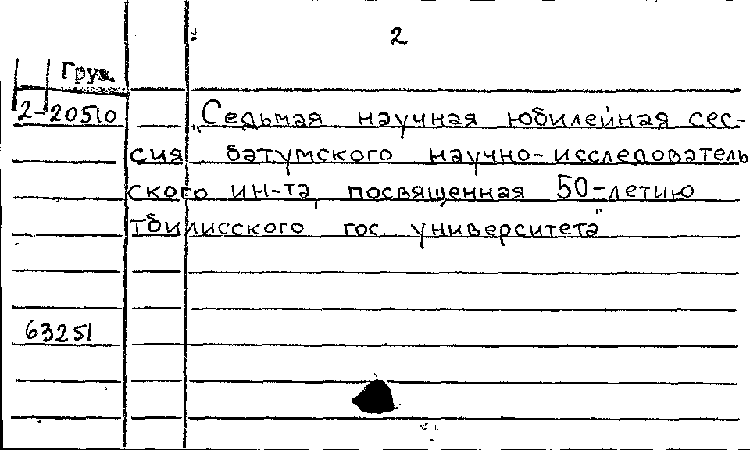 2
Груз.
2-20510 „Седьмая научная юбилейная сес-
сия батумского научно-исследователь
ского ин-та, посвященная 50-летию
Тбилисского гос. университета"
63251